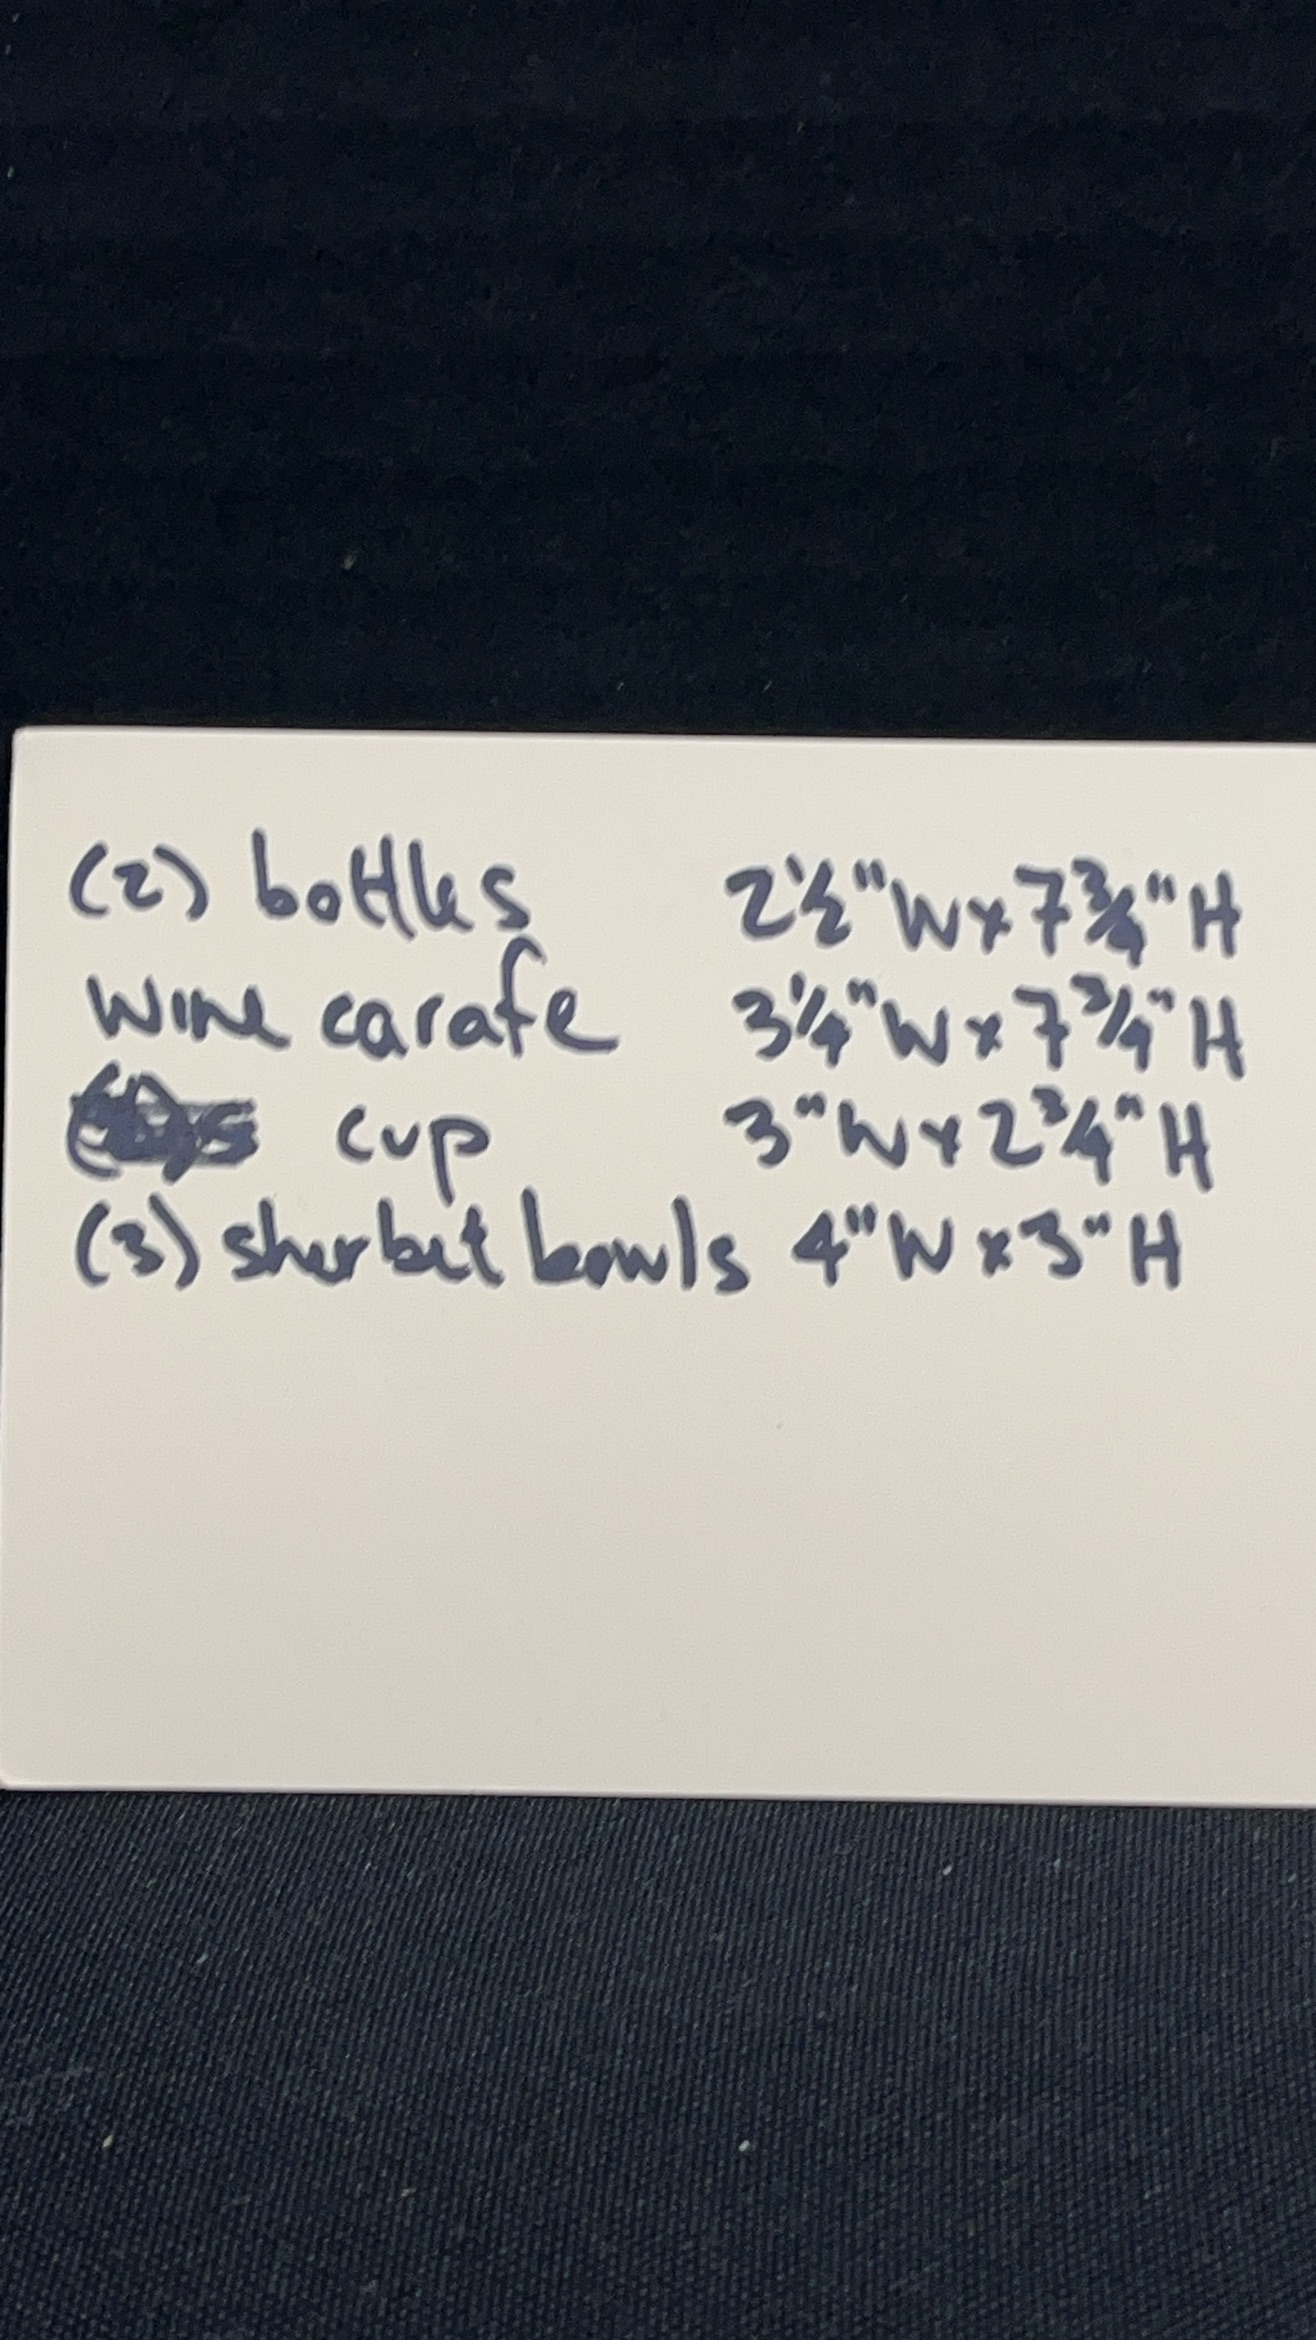 (2) bottles 2½"W x 7¾"H
wine carafe 3¼"W x 7¾"H
cup 3"W x 2¾"H
(3) sherbet bowls 4"W x 3"H